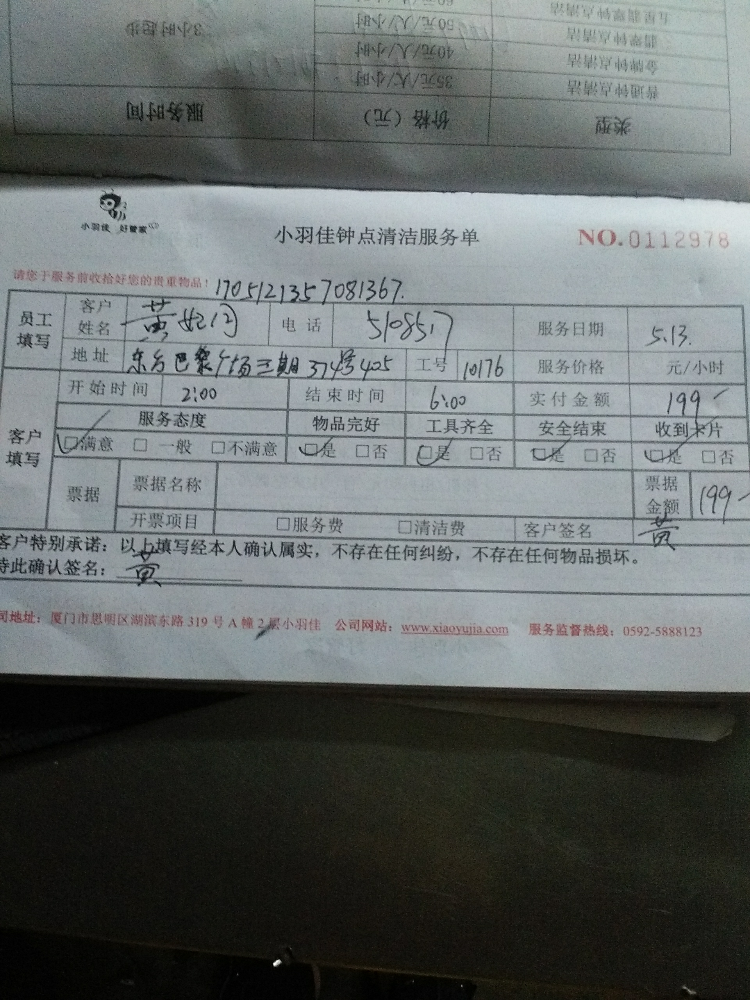 60元/人/小时
五星翡翠钟点清洁
3小时起步
50元/人/小时
翡翠钟点清洁
40元/人/小时
金牌钟点清洁
35元/人/小时
普通钟点清洁
服务时间
价格（元）
类型
小羽佳 好管家
小羽佳钟点清洁服务单
NO.0112978
请您于服务前收拾好您的贵重物品！
1705121357081367.
员工填写
客户姓名
黄
电 话
5108517
服务日期
5.13.
地 址
东方巴黎广场三期374号405
工号
10176
服务价格
元/小时
客户填写
开始时间
2:00
结束时间
6:00
实付金额
199
服务态度
物品完好
工具齐全
安全结束
收到卡片
□满意 □ 一般 □不满意
□是 □否
□是 □否
□是 □否
□是 □否
票据
票据名称
票据金额
199
开票项目
□服务费 □清洁费
客户签名
黄
客户特别承诺：以上填写经本人确认属实，不存在任何纠纷，不存在任何物品损坏。
特此确认签名：
黄
司地址：厦门市思明区湖滨东路 319 号 A 幢 2 层小羽佳 公司网站：www.xiaoyujia.com 服务监督热线：0592-5888123